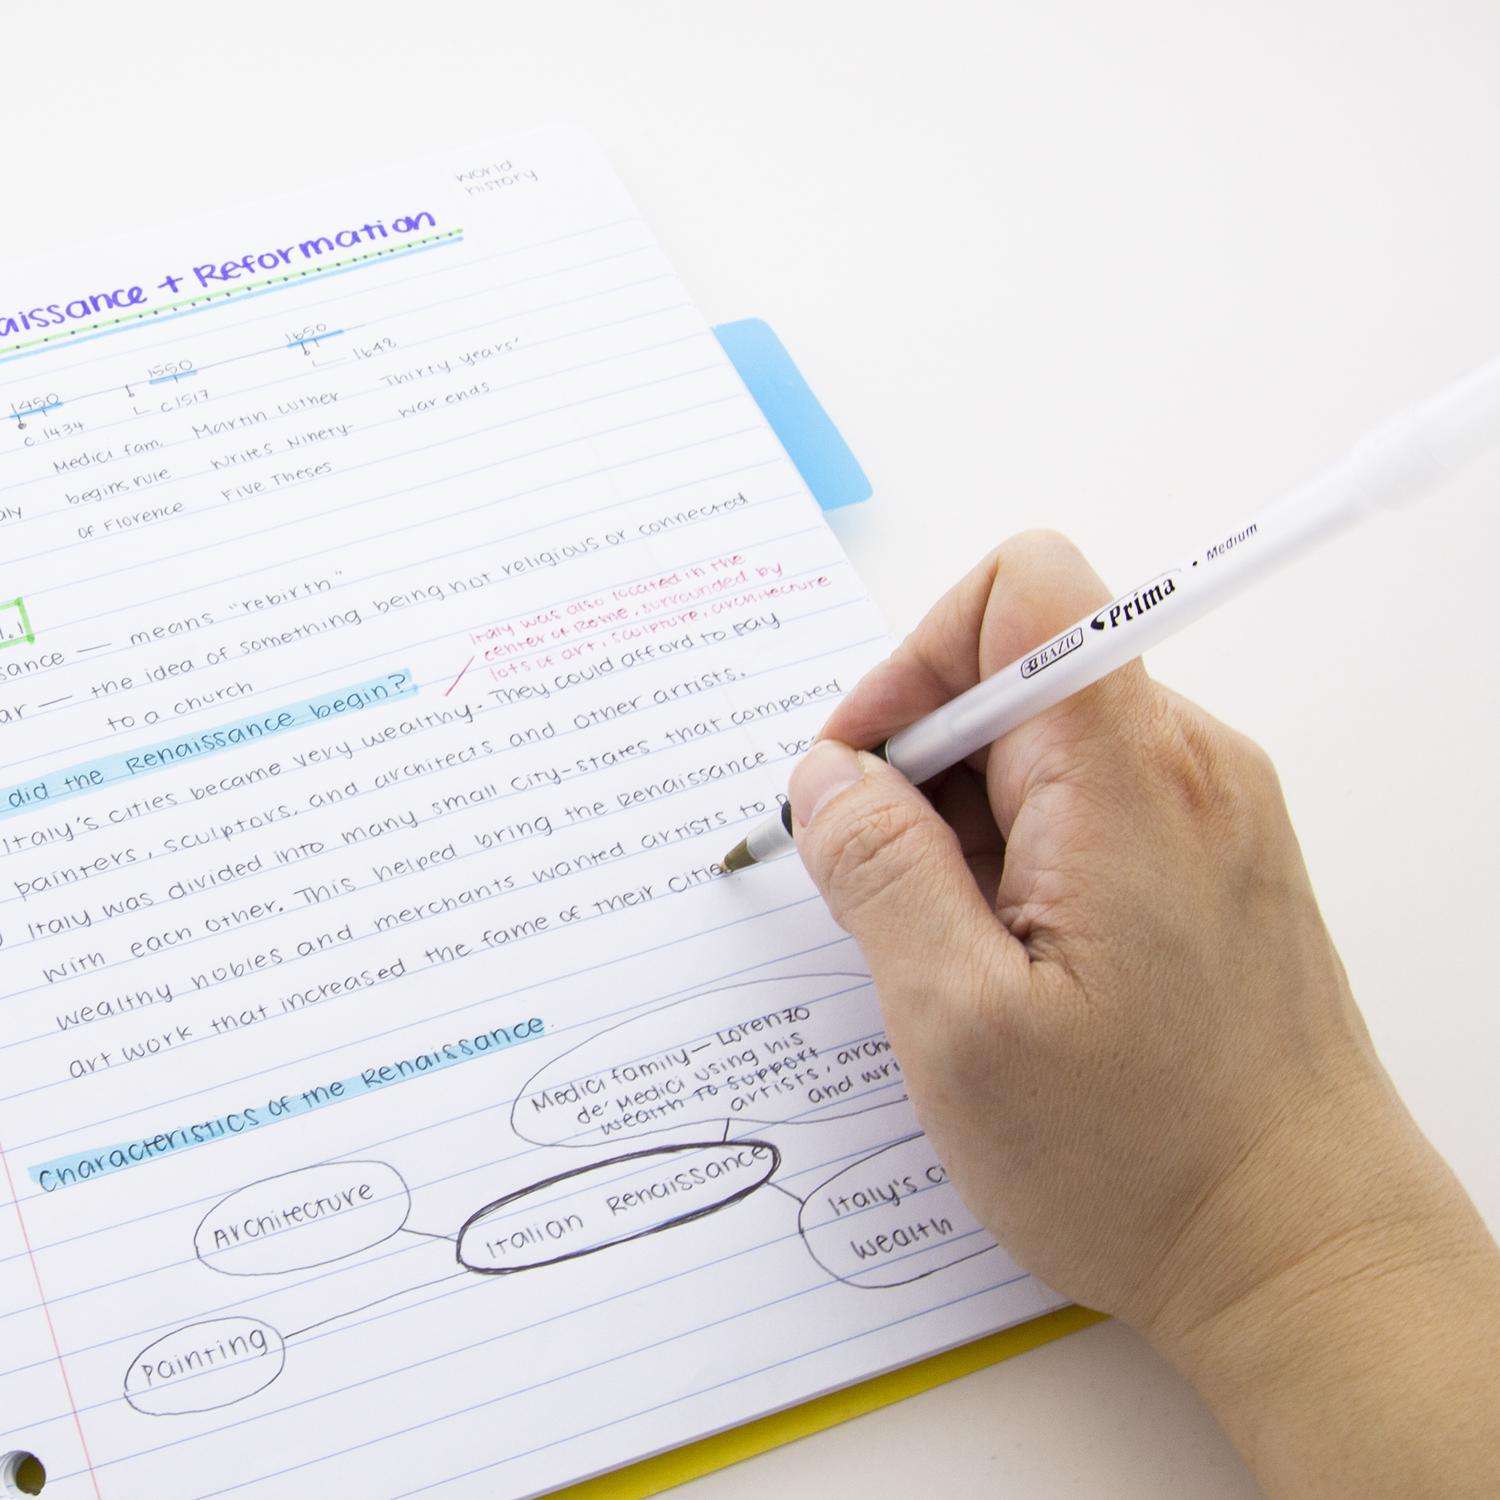 world
history
aissance + Reformation
1450
1550
1650
c.1434
c1517
1648
aly
Medici fam.
begins rule
of Florence
Martin Luther
writes Ninety-
Five Theses
Thirty years'
war ends
1.1
sance — means "rebirth"
ar — the idea of something being not religious or connected
to a church
did the Renaissance begin?
Italy was also located in the
center of Rome, surrounded by
lots of art, sculpture, architecture
Italy's cities became very wealthy. They could afford to pay
painters, sculptors, and architects and other artists.
Italy was divided into many small city-states that competed
with each other. This helped bring the Renaissance bec
wealthy nobles and merchants wanted artists to p
art work that increased the fame of their citie
Characteristics of the Renaissance
Medici family — Lorenzo
de' Medici using his
wealth to support
artists, archi
and wri
Architecture
Italian Renaissance
Italy's ci
wealth
Painting
BAZIC Prima • Medium